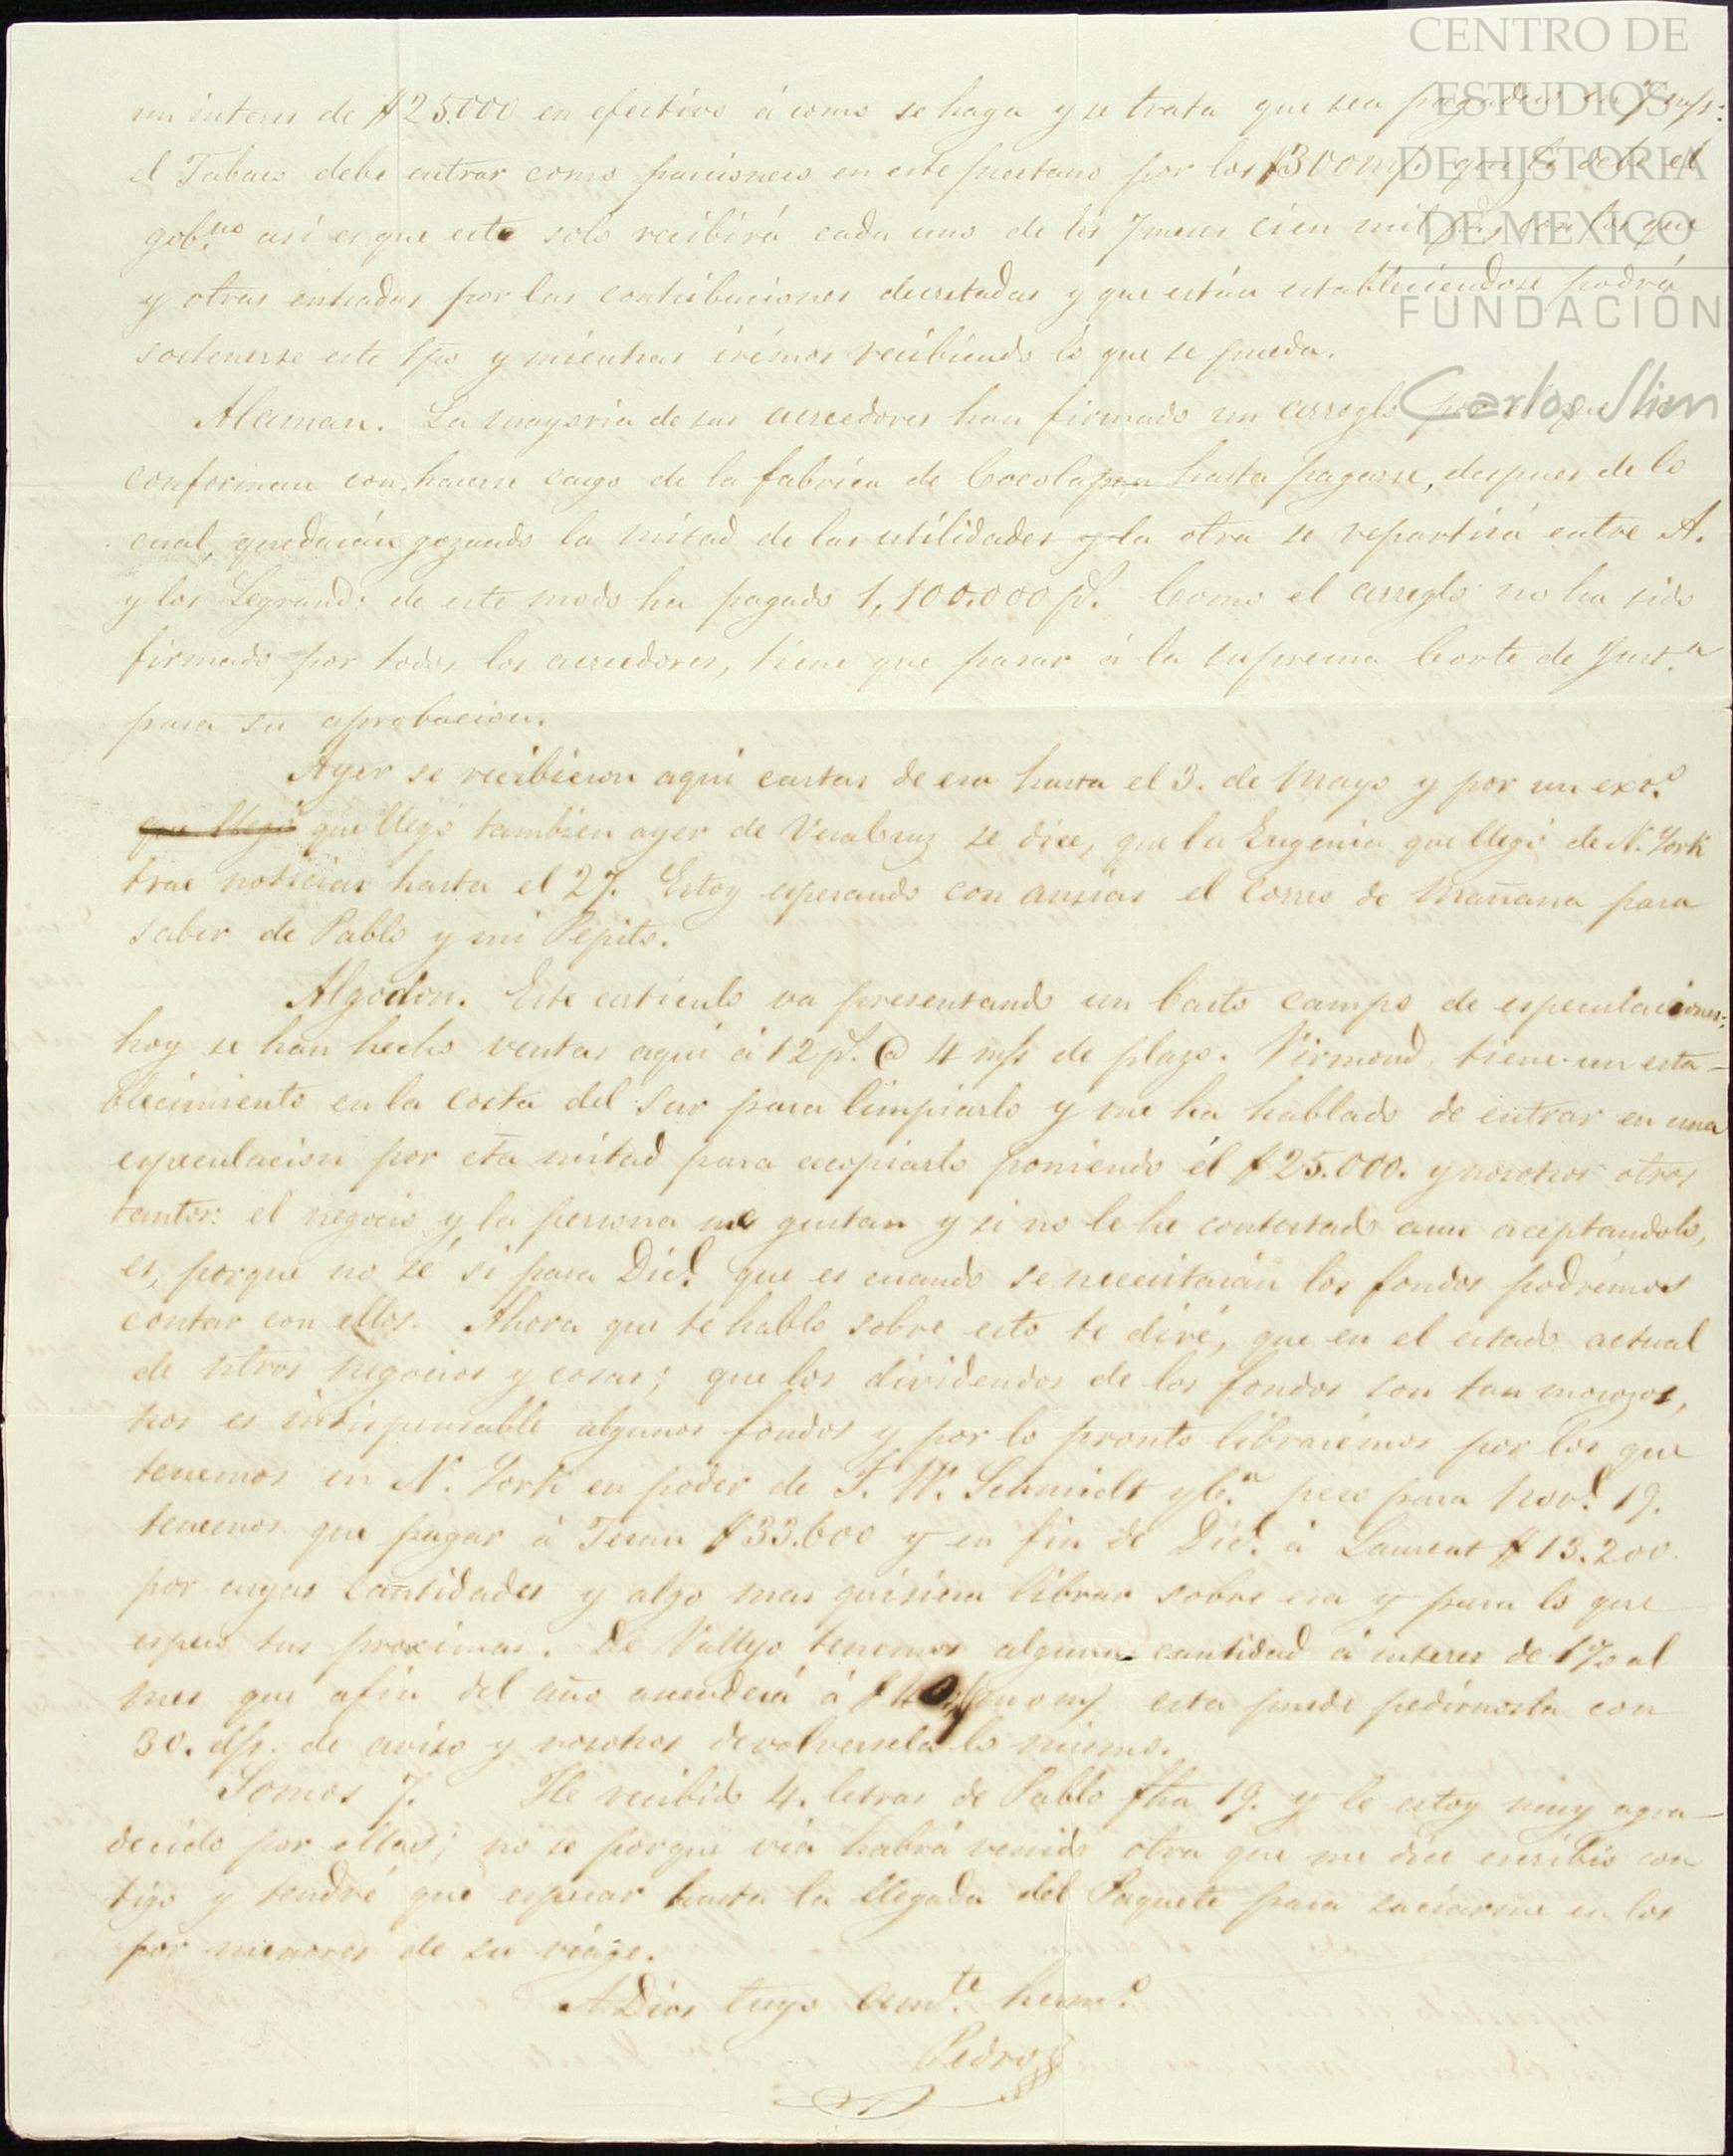 CENTRO DE
ESTUDIOS
DE HISTORIA
DE MEXICO
FUNDACIÓN
Carlos Slim
un interes de $25.000 en efectivo á como se haga y se trata que sea pagadero en 7 m/s:
el Tabaco debe entrar como parcionero en este prestamo por los $300 m/p que le debe el
gob.no así es que este solo recibirá cada uno de los 7 meses cien mil p.s con los que
y otras entradas por las contribuciones decretadas y que están estableciendose podrá
sostenerse este tpo y mientras irémos recibiendo lo que se pueda.
Alaman. La mayoria de sus acreedores han firmado un arreglo por el que se
conforman con hacerse cargo de la fabrica de Cocolapan hasta pagarse, despues de lo
cual, quedarán gozando la mitad de las utilidades y la otra se repartirá entre A.
y los Legrand: de este modo ha pagado 1,100.000 p.s. Como el arreglo no ha sido
firmado por todos los acreedores, tiene que pasar á la suprema Corte de Just.a
para su aprobacion.
Ayer se recibieron aqui cartas de esa hasta el 3. de Mayo y por un exo.o
que llegó que llegó tambien ayer de VeraCruz se dice, que la Eugenia que llegó de N. York
trae noticias hasta el 27. Estoy esperando con ansias el correo de Mañana para
saber de Pablo y mi Pepito.
Algodon. Este articulo va presentando un basto campo de especulaciones:
hoy se han hecho ventas aqui á 12 p.s @ 4 m/s de plazo. Virmond, tiene un esta-
blecimiento en la costa del Sur para limpiarlo y me ha hablado de entrar en una
especulacion por cta mitad para acopiarlo poniendo él $25.000. y nosotros otros
tantos: el negocio y la persona me gustan y si no le he contestado aun aceptandolo,
es, porque no sé si para Dic.e que es cuando se necesitarán los fondos podrémos
contar con ellos. Ahora que te hablo sobre esto te diré, que en el estado actual
de ntros negocios y cosas; que los dividendos de los fondos son tan morozos,
nos es indispensable algunos fondos y por lo pronto librarémos por los que
tenemos en N. York en poder de J. W. Schmidt y C.a pero para Nov.e 19.
tenemos que pagar á Teran $33.600 y en fin de Dic.e á Laurent $13.200.
por cuyas cantidades y algo mas quisiera librar sobre esa y para lo que
espero tus proximas. De Vallejo tenemos alguna cantidad á interes de 1% al
mes que afin del año ascenderá á $40 esta puede pedirnosla con
30. d/s. de aviso y nosotros devolversela lo mismo.
Somos 7. He recibido 4. letras de Pablo fha 19. y le estoy muy agra-
decido por ellas; no se porque via habrá venido otra que me dice escribió con-
tigo y tendré que esperar hasta la llegada del Paquete para saciarme en los
por menores de su viage.
A Dios tuyo Am.te herm.o
Pedro